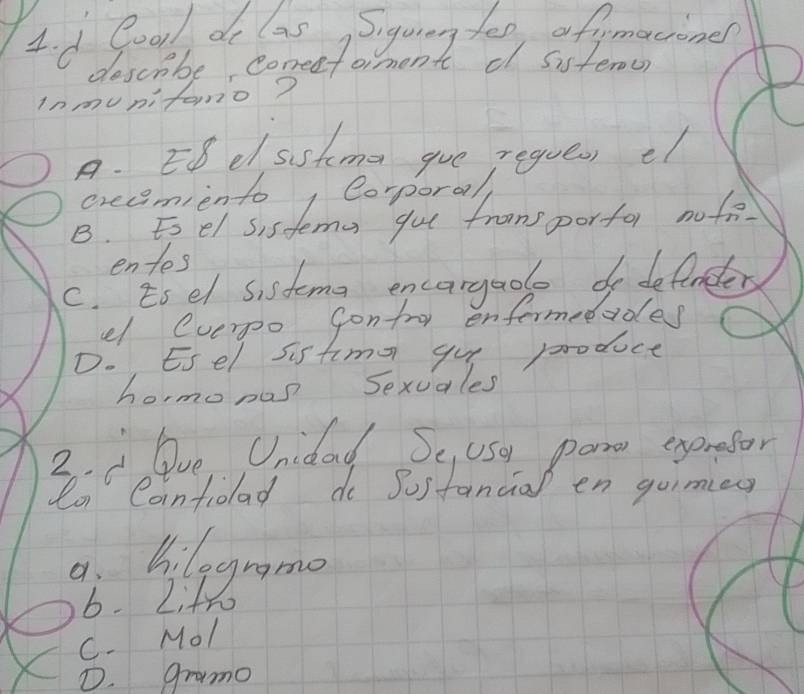 1. ¿ Cual de las siguientes afirmaciones
describe, correctamente el sistema
inmunitario?
A. Es el sistema que regula el
crecimiento corporal,
B. Es el sistema que transporta nutri-
entes
C. Es el sistema encargado de defender
el cuerpo contra enfermedades
D. Es el sistema que produce
hormonas sexuales
2. ¿ Que Unidad Se usa para expresar
la Cantidad de Sustancias en quimica
a. Kilogramo
b. Litro
C. Mol
D. gramo